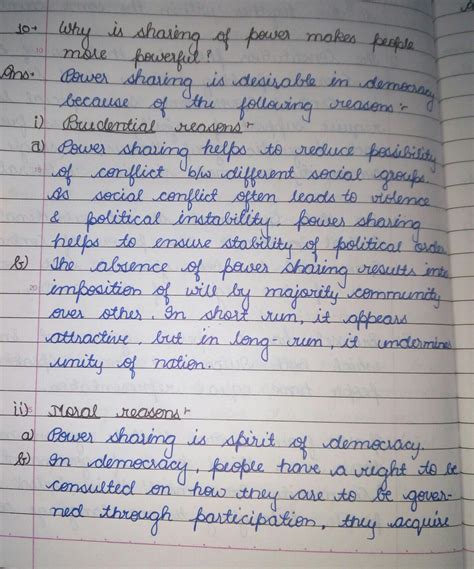 10. Why is sharing of power makes people
more powerful?
Ans. Power sharing is desirable in democracy
because of the following reasons:-
i) Prudential reasons:-
a) Power sharing helps to reduce possibility
of conflict b/w different social groups.
As social conflict often leads to violence
& political instability, power sharing
helps to ensure stability of political order.
b) The absence of power sharing results into
imposition of will by majority community
over other. In short run, it appears
attractive, but in long-run, it undermines
unity of nation.
ii) Moral reasons:-
a) Power sharing is spirit of democracy.
b) In democracy, people have a right to be
consulted on how they are to be gover-
ned through participation, they acquire